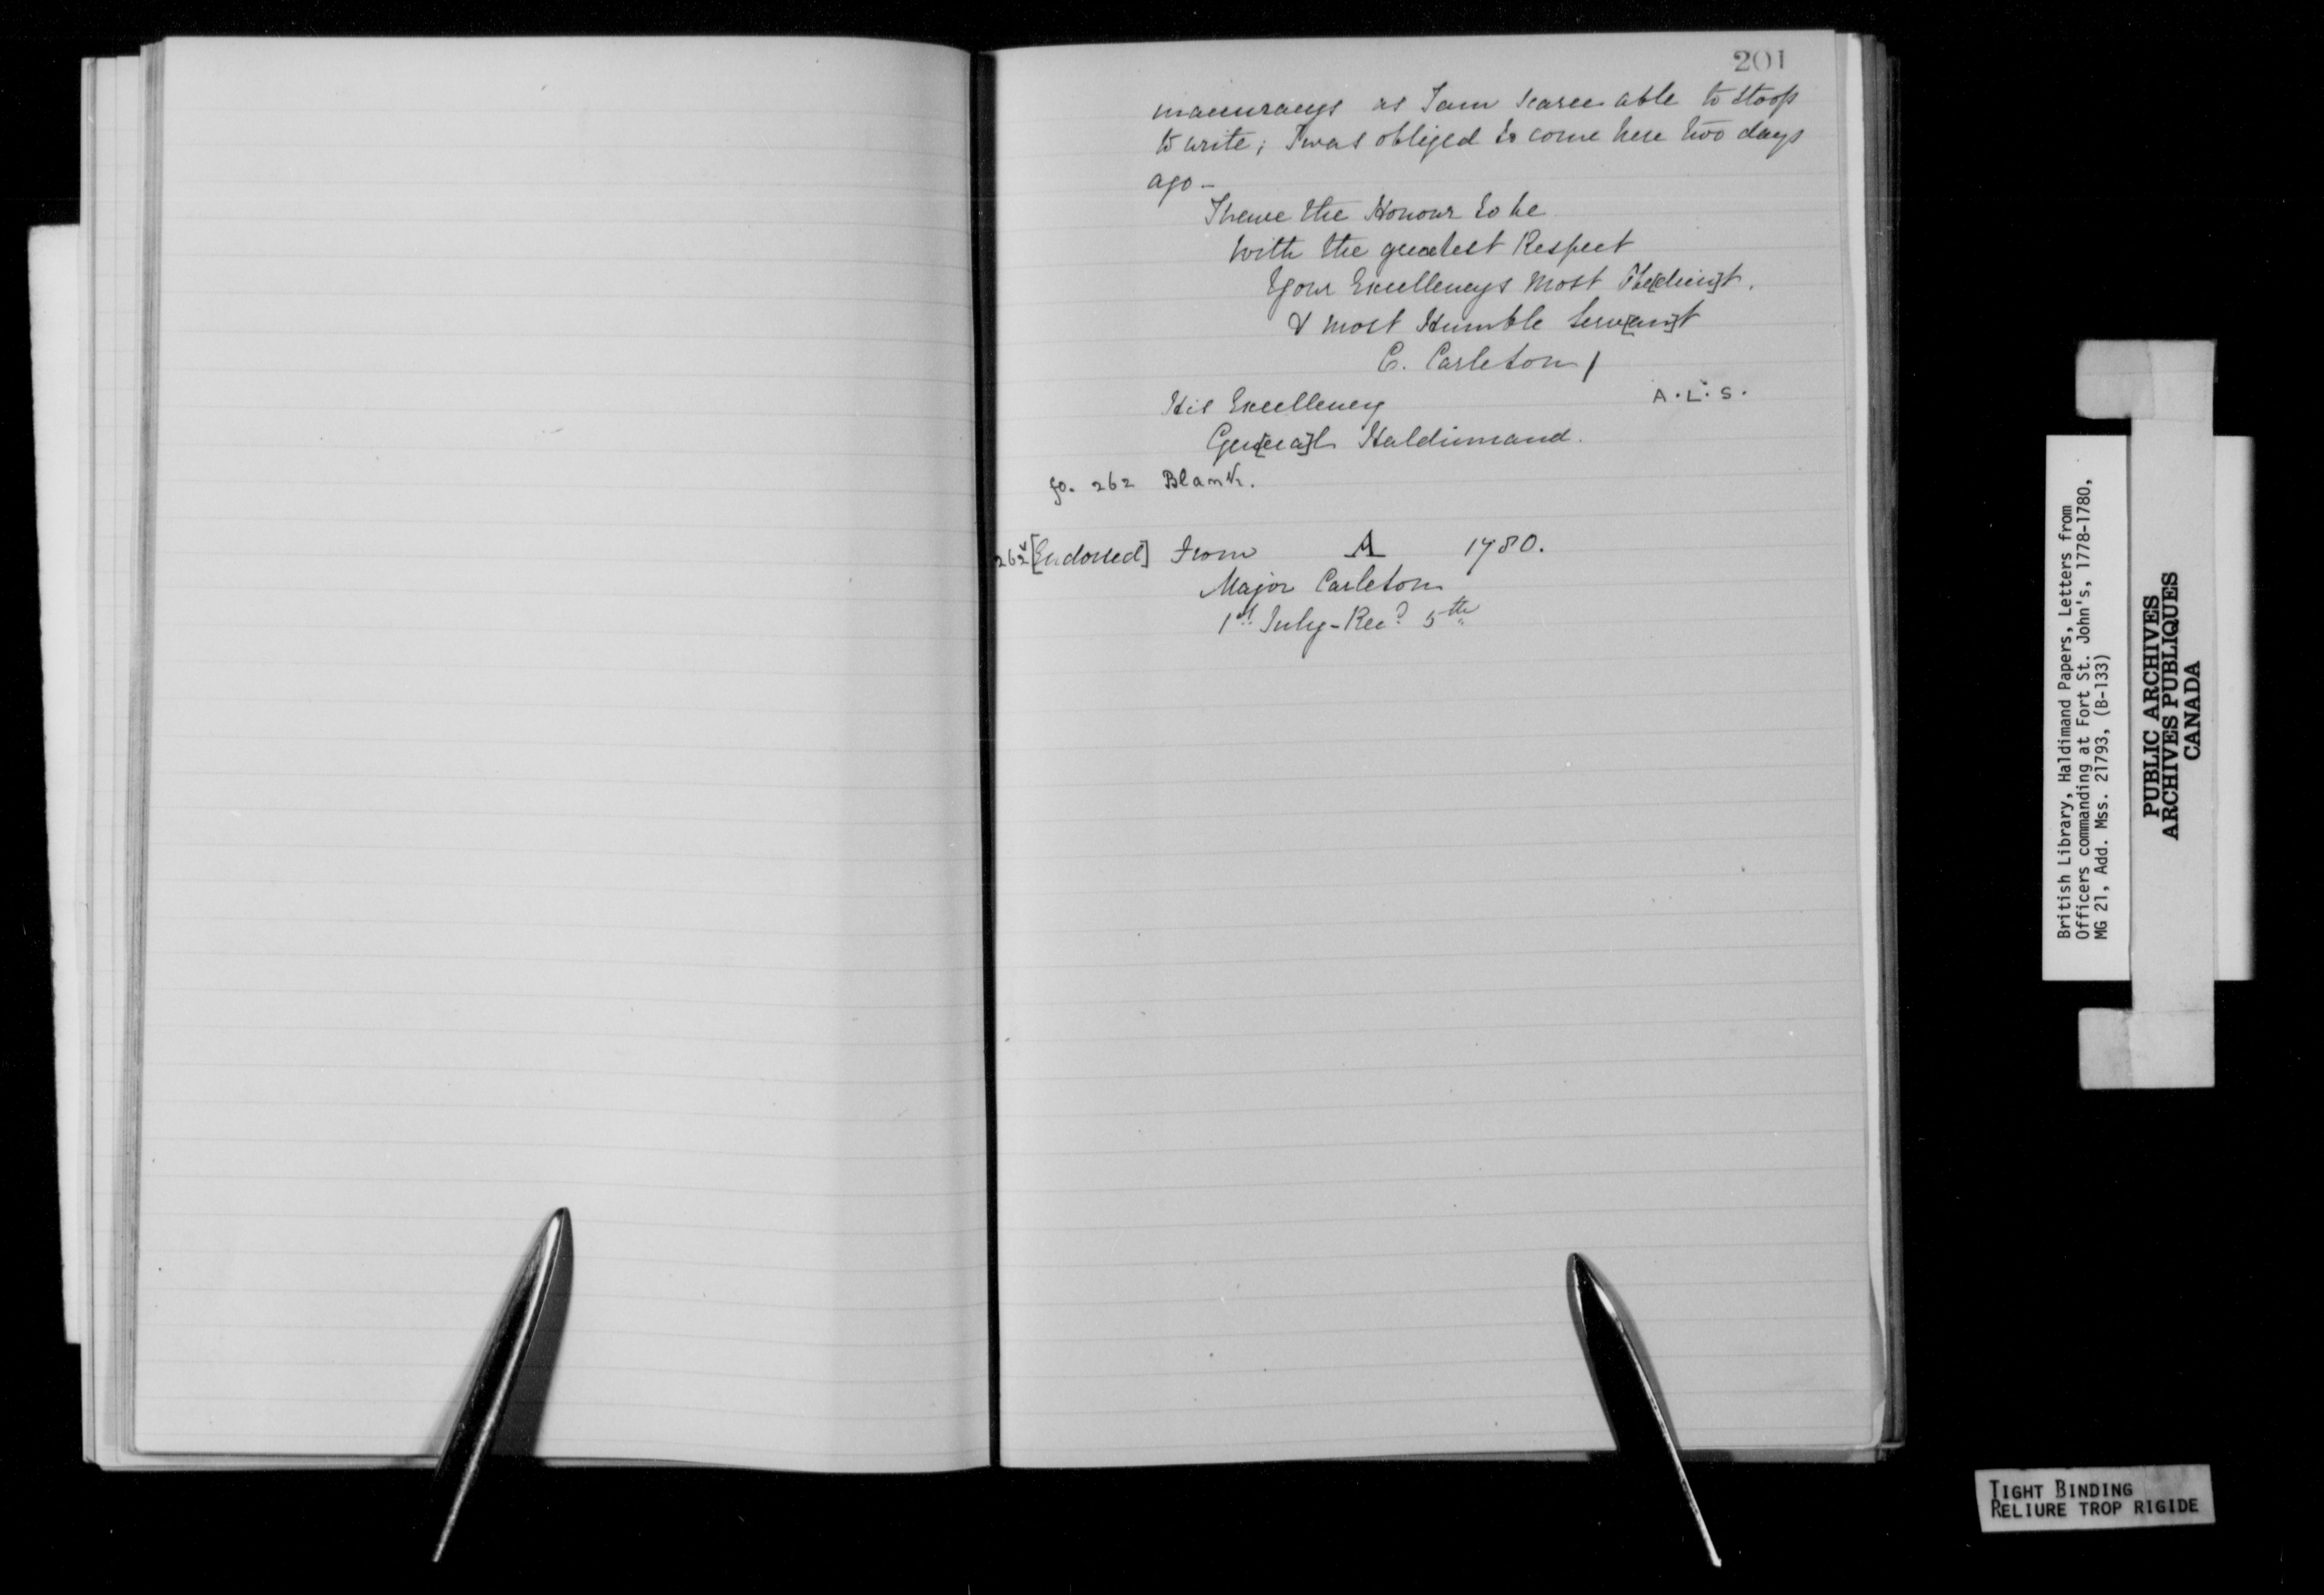 201
inaccuracys as I am scarce able to stoop
to write; I was obliged to come here two days
ago –
I have the Honour to be
With the greatest Respect
Your Excellencys Most Obe[dien]t.
& most Humble Serv[an]t
C. Carleton /
A.L.S.
His Excellency
Gen[era]l Haldimand.
fo. 262 Blank.
262v [Endorsed] From A 1780.
Major Carleton
1st July – Recd 5th
British Library, Haldimand Papers, Letters from
Officers commanding at Fort St. John's, 1778-1780,
MG 21, Add. Mss. 21793, (B-133)
PUBLIC ARCHIVES
ARCHIVES PUBLIQUES
CANADA
TIGHT BINDING
RELIURE TROP RIGIDE